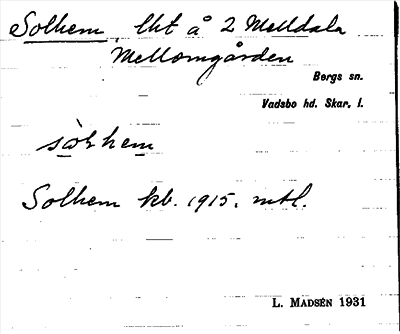 Solhem, lht å 2 Melldala
Mellomgården
Bergs sn.
Vadsbo hd. Skar. l.
sòlhem
Solhem kb. 1915. mtl.
L. MADSÉN 1931